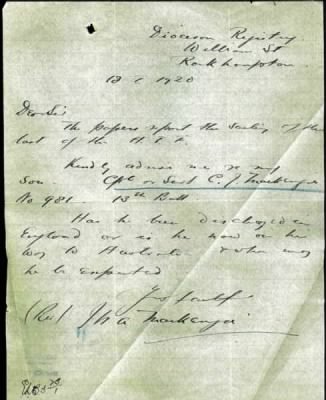 Diocesan Registry
William St
Rockhampton
1920
Dear Sir
The papers report the sailing of the
last of the A.I.F.
Kindly advise me re my
son Cpl or Sergt C. J. Mackenzie
No 981. 13th Batt.
Has he been discharged in
England or is he now on his
way to Australia & when may
he be expected
Yrs faithf
(Rev) Mackenzie